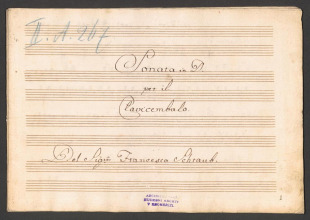 II. A. 267
Sonata in D.
per il
Clavicembalo
Del Sigre Francesco Schraub.
1